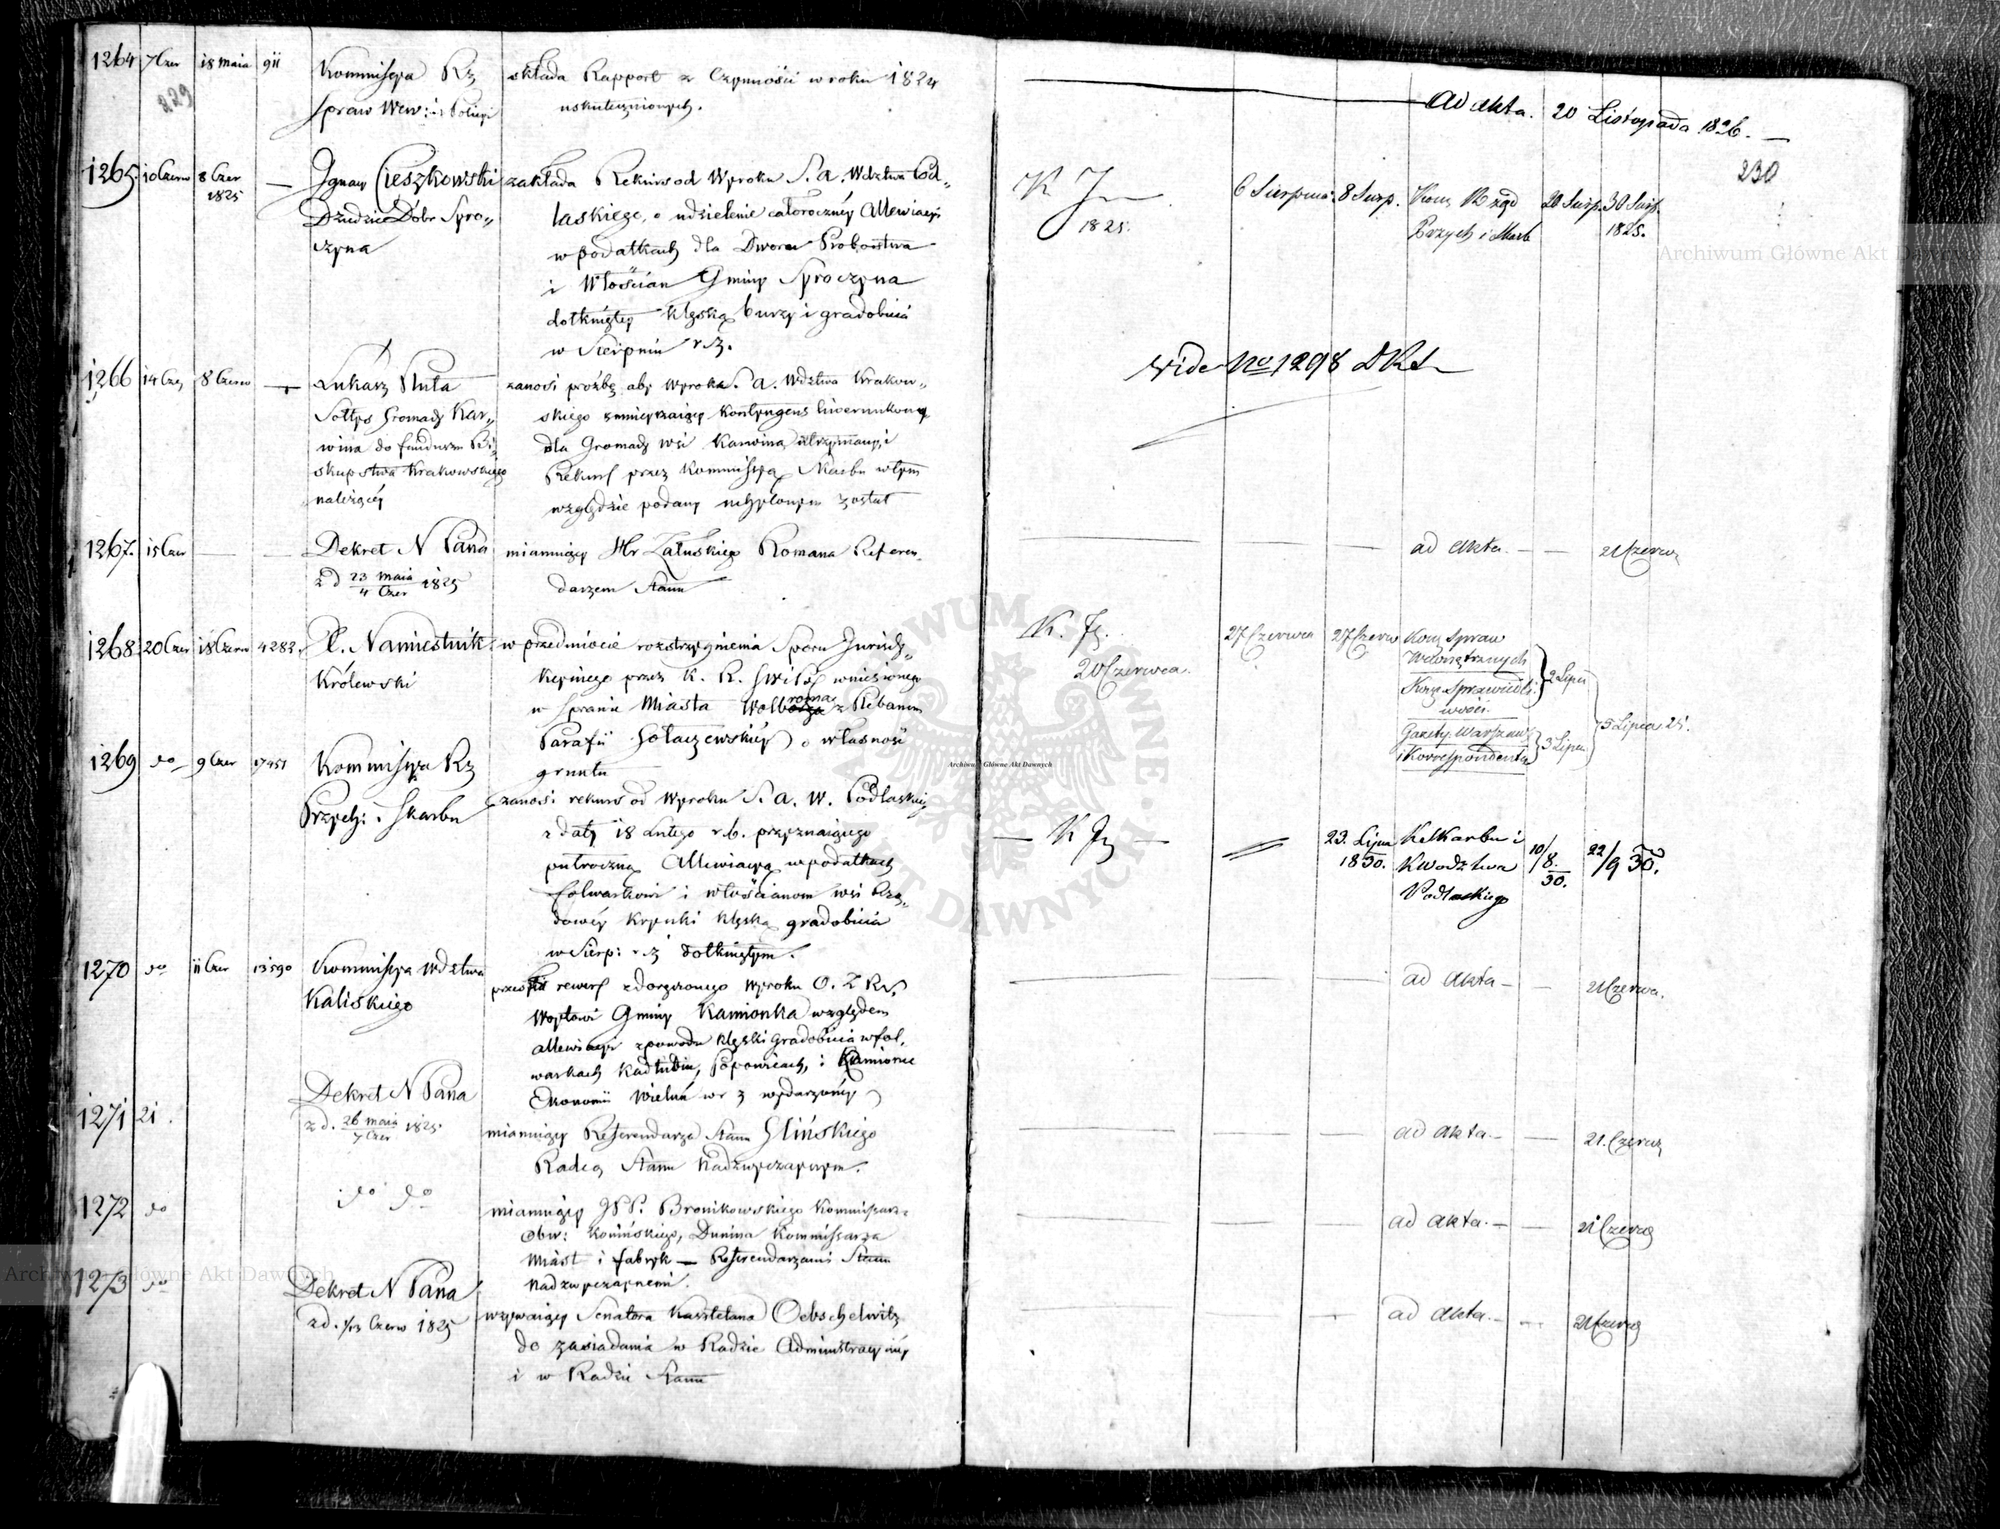 1264 7 Czer 18 maia 911 Kommissya Rz składa Rapport z Czynności w roku 1824
Spraw Wew: i Policyi uskutecznionych.
229
Ad akta. 20 Listopada 1826.
230
1265. 10 Czerw 8 Czer 1825 — Ignacy Cieszkowski zakłada Rekurs od Wyroku S. a. Wdztwa Pod„
Dziedzic Dobr Spro„ laskiego, o udzielenie całorocznéy Allewiacyi
czyna w podatkach dla Dworu Probostwa
i Włościan Gminy Sproczyna
dotkniętey klęską burzy i gradobicia
w Sierpniu r. z.
1825. 6 Sierpnia. 8 Sierp. Kom Rząd 20 Sierp. 30 Sierp.
Przych i Skarb 1825.
1266 14 Cze 8 Czerw — Łukasz Nuta zanosi prożbę aby Wyrok S. a. Wdztwa Krakow„
Sołtys Gromady Kar„ skiego zmnieyszaiący Kontyngens liwerunkowy
wina do funduszu Bi„ dla Gromady wsi Karwina utrzymany, i
skupstwa Krakowskiego Rekurs przez Kommissyą Skarbu w tym
należącéy względzie podany uchylonym został
vide No 1298 DKt
1267. 15 Czer — — Dekret N Pana mianuiący Hr Załuskiego Romana Referen„
z d 23 maia / 4 Czer 1825 darzem Stanu
ad akta. — — 21 Czerwca
1268 20 Czer 18 Czerw 4282. X. Namiestnik w przedmiocie rozstrzygnienia Sporu Jurisdy„
Królewski kcyinego przez K. R. S. wniesionego
w sprawie Miasta Wolborza z Plebanem
Parafii o własność
gruntu
20 Czerwca. 27 Czerwca 27 Czerw Kom Spraw
Wewnętrznych
Kom Sprawiedli„
wości. 2 Lipca
Gazety Warszaw
i Korrespondenta 3 Lipca
5 Lipca 25.
1269 do 9 Czer 17451 Kommissya Rz zanosi rekurs od Wyroku S. a. W. Podlaskiego
Przych: i Skarbu z daty 18 Lutego r. b. przyznaiącego
półroczną Allewiacyą w podatkach
folwarkowi i włościanom wsi Rzą„
dowéy Krynki klęską gradobicia
w Sierp: r. z dotkniętym.
23. Lipca 1830. K Skarbu i
K Wodztwa
Podlaskiego 10/8. 30. 22/9 30.
1270 do 11 Czer 13590 Kommissya Wdztwa rewers z doręczonego Wyroku
Kaliskiego Woytowi Gminy Kamionka względem
allewiacyi z powodu klęski gradobicia w fol„
warkach Kadłubiu, Popowicach, i Kamionce
Ekonomii Wieluń w r z wydarzonéy
ad akta — — 21 Czerwca.
1271 21. Dekret N Pana mianuiący Referendarza Stanu Glińskiego
z d. 26 maia / 7 Czer 1825 Radcą Stanu Nadzwyczaynym.
ad akta. — — 21. Czerwca
1272 do do do mianuiący JPP. Bronikowskiego Kommissarza
Obw: Konińskiego, Dunina Kommissarza
Miast i fabryk — Referendarzami Stanu
Nadzwyczaynemi.
ad akta. — — 21 Czerwca
1273 do Dekret N Pana wzywaiący Senatora Kasztelana Oebschelwitz
z d. 1/13 Czerw 1825 do zasiadania w Radzie Administracyinéy
i w Radzie Stanu
ad akta. — — 21 Czerwca
Archiwum Główne Akt Dawnych
Archiwum Główne Akt Dawnych
Archiwum Główne Akt Dawnych
ARCHIWUM GŁÓWNE AKT DAWNYCH